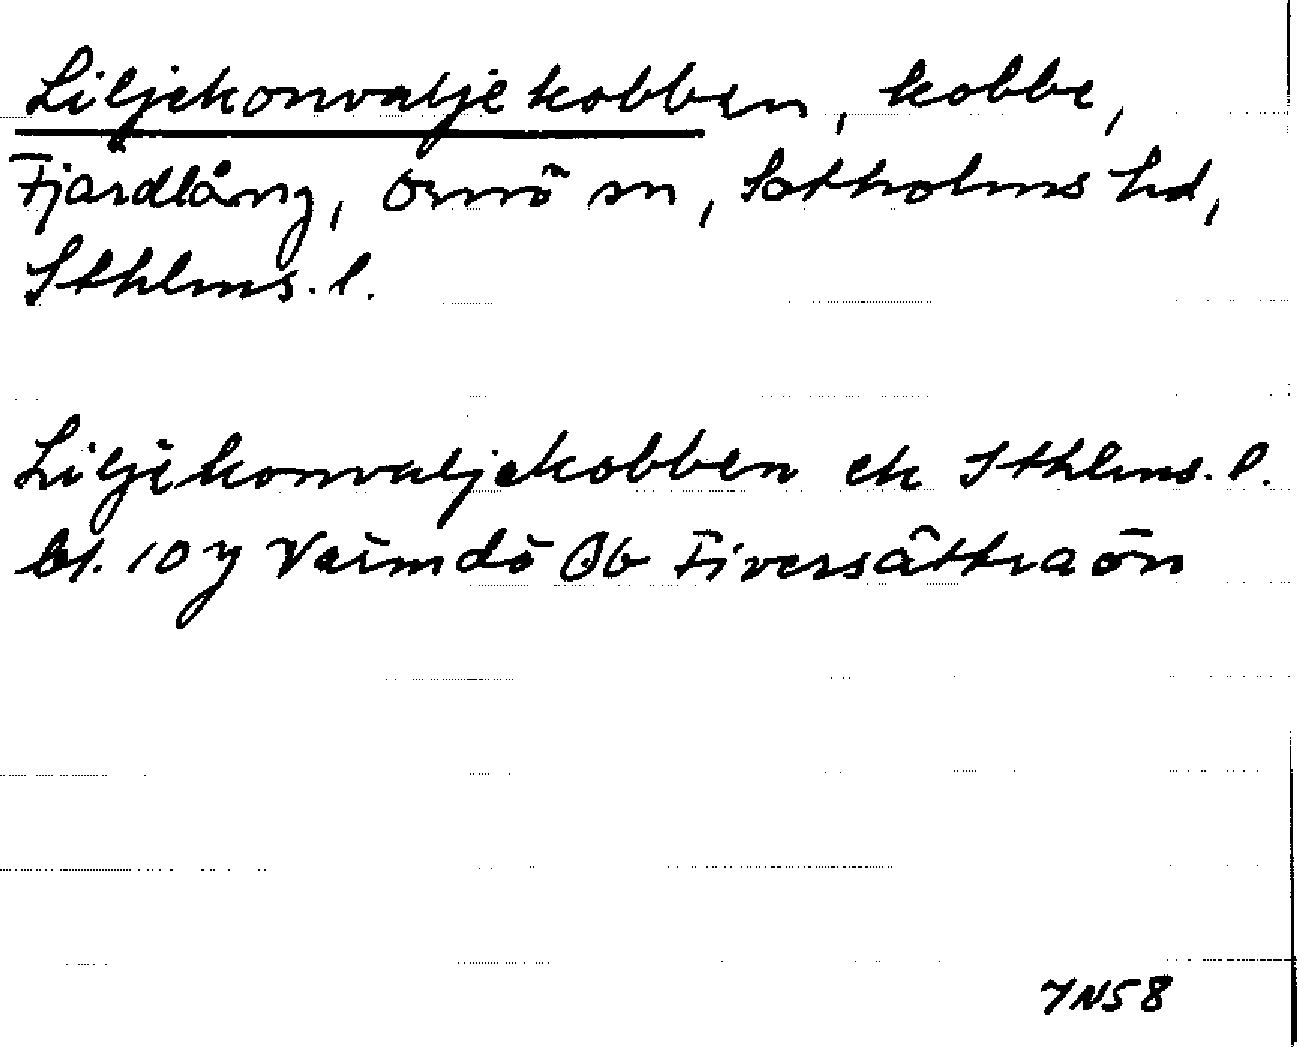 Liljekonvaljekobben, kobbe,
Fjärdlång, Ornö sn, Sotholms hd,
Sthlms. l.
Liljekonvaljekobben ek Sthlms. l.
bl. 10 y Värmdö Ob Fiversättraön
YN58